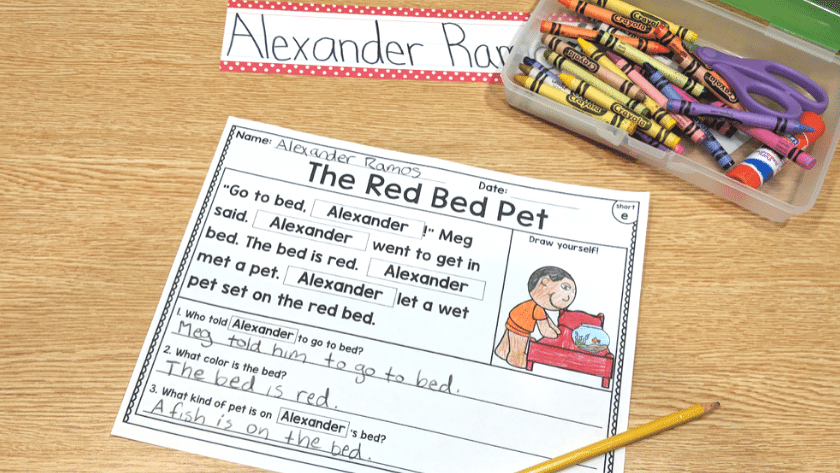 Alexander Ram
Name: Alexander Ramos
Date:
The Red Bed Pet
short
e
"Go to bed, Alexander !" Meg
said. Alexander went to get in
bed. The bed is red. Alexander
met a pet. Alexander let a wet
pet set on the red bed.
Draw yourself!
1. Who told Alexander to go to bed?
Meg told him to go to bed.
2. What color is the bed?
The bed is red.
3. What kind of pet is on Alexander 's bed?
A fish is on the bed.
Crayola
Crayola
Crayola
Crayola
Crayola
Crayola